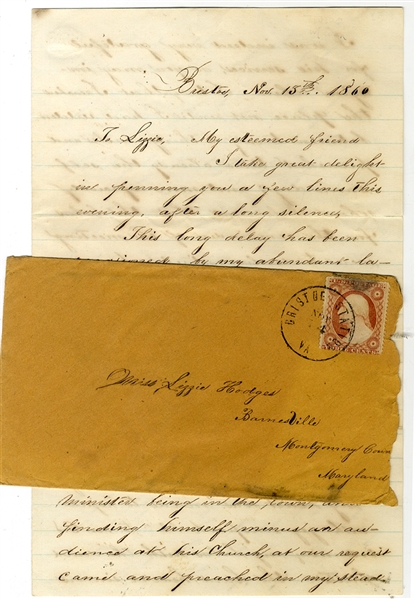 Bristow, Nov. 15th. 1860
To Lizzie, My esteemed friend
I take great delight
in penning you a few lines this
evening, after a long silence,
This long delay has been
by my abundant la-
BRISTOE STAT
VA
Miss Lizzie Hodges
BarnesVille
Montgomery Coun
Maryland
minister being in the town, and
finding himself minus an au-
dience at his Church, at our request
came and preached in my stead.